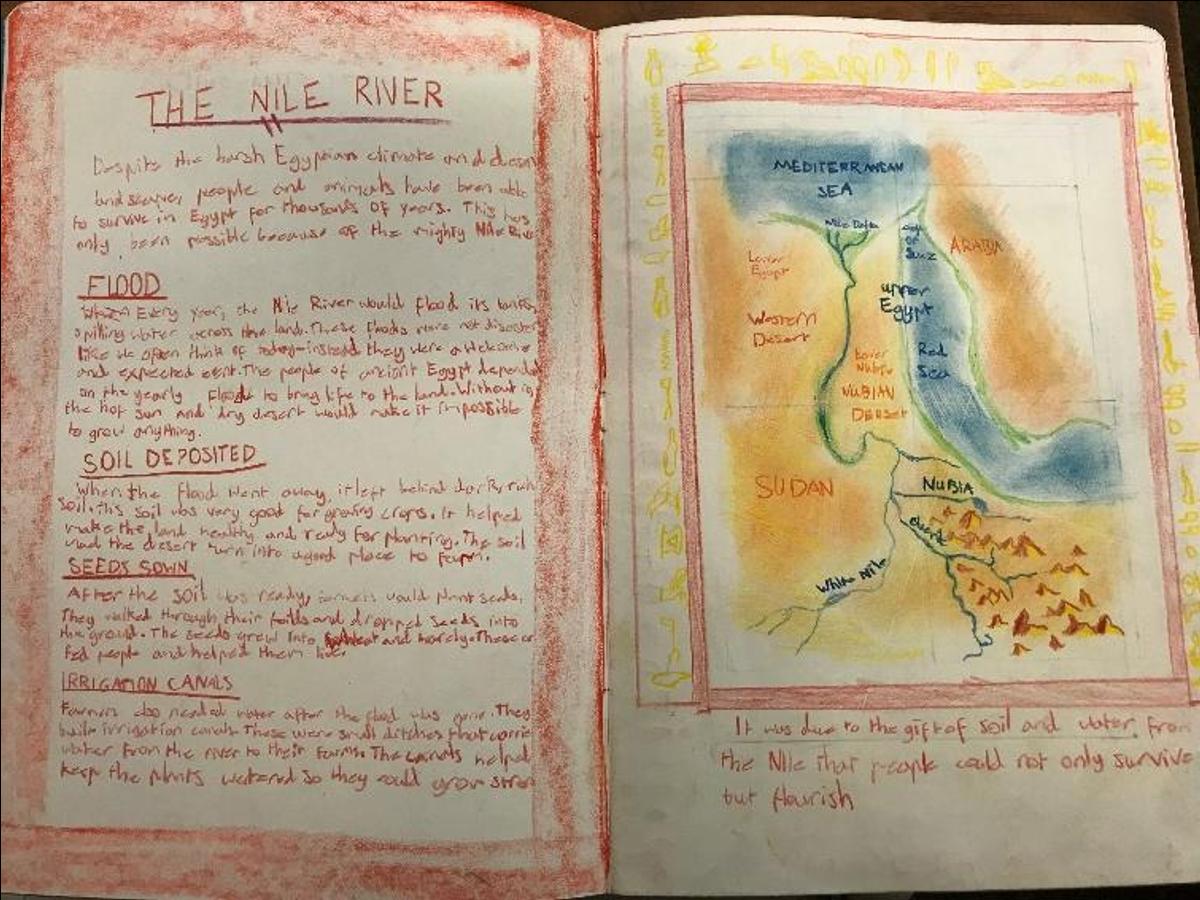 THE NILE RIVER
Despite the harsh Egyptian climate and desert
landscapes, people and animals have been able
to survive in Egypt for thousands of years. This has
only been possible because of the mighty Nile River
FLOOD
Every year, the Nile River would flood its banks
spilling water across the land. These floods were not disasters
like we often think of today-instead they were a welcome
and expected event. The people of ancient Egypt depend
on the yearly Flood to bring life to the land. Without it,
the hot sun and dry desert would make it impossible
to grow anything.
SOIL DEPOSITED
When the flood went away, it left behind dark, rich
Soil. this soil was very good for growing crops. It helped
make the land healthy and ready for planting. The soil
the desert turn into a good place to farm.
SEEDS SOWN
After the soil was ready, farmers would plant seeds.
They walked through their feilds and dropped seeds into
the ground. The seeds grew into wheat and barely. These
fed people and helped them live.
IRRIGATION CANALS
Farmers also needed water after the flood was gone. They
built irrigation canals. These were small ditches that carrie
water from the river to their farms. The canals helped
keep the plants watered so they could grow stron
MEDITERRANEAN
SEA
Nile Delta
of
Suez
ARABIA
Lower
Egypt
upper
Egypt
Western
Desert
Red
Sea
Lower
Nubia
NUBIAN
DERSET
SUDAN
NUBIA
White Nile
It was due to the gift of soil and water from
the Nile that people could not only survive
but flourish